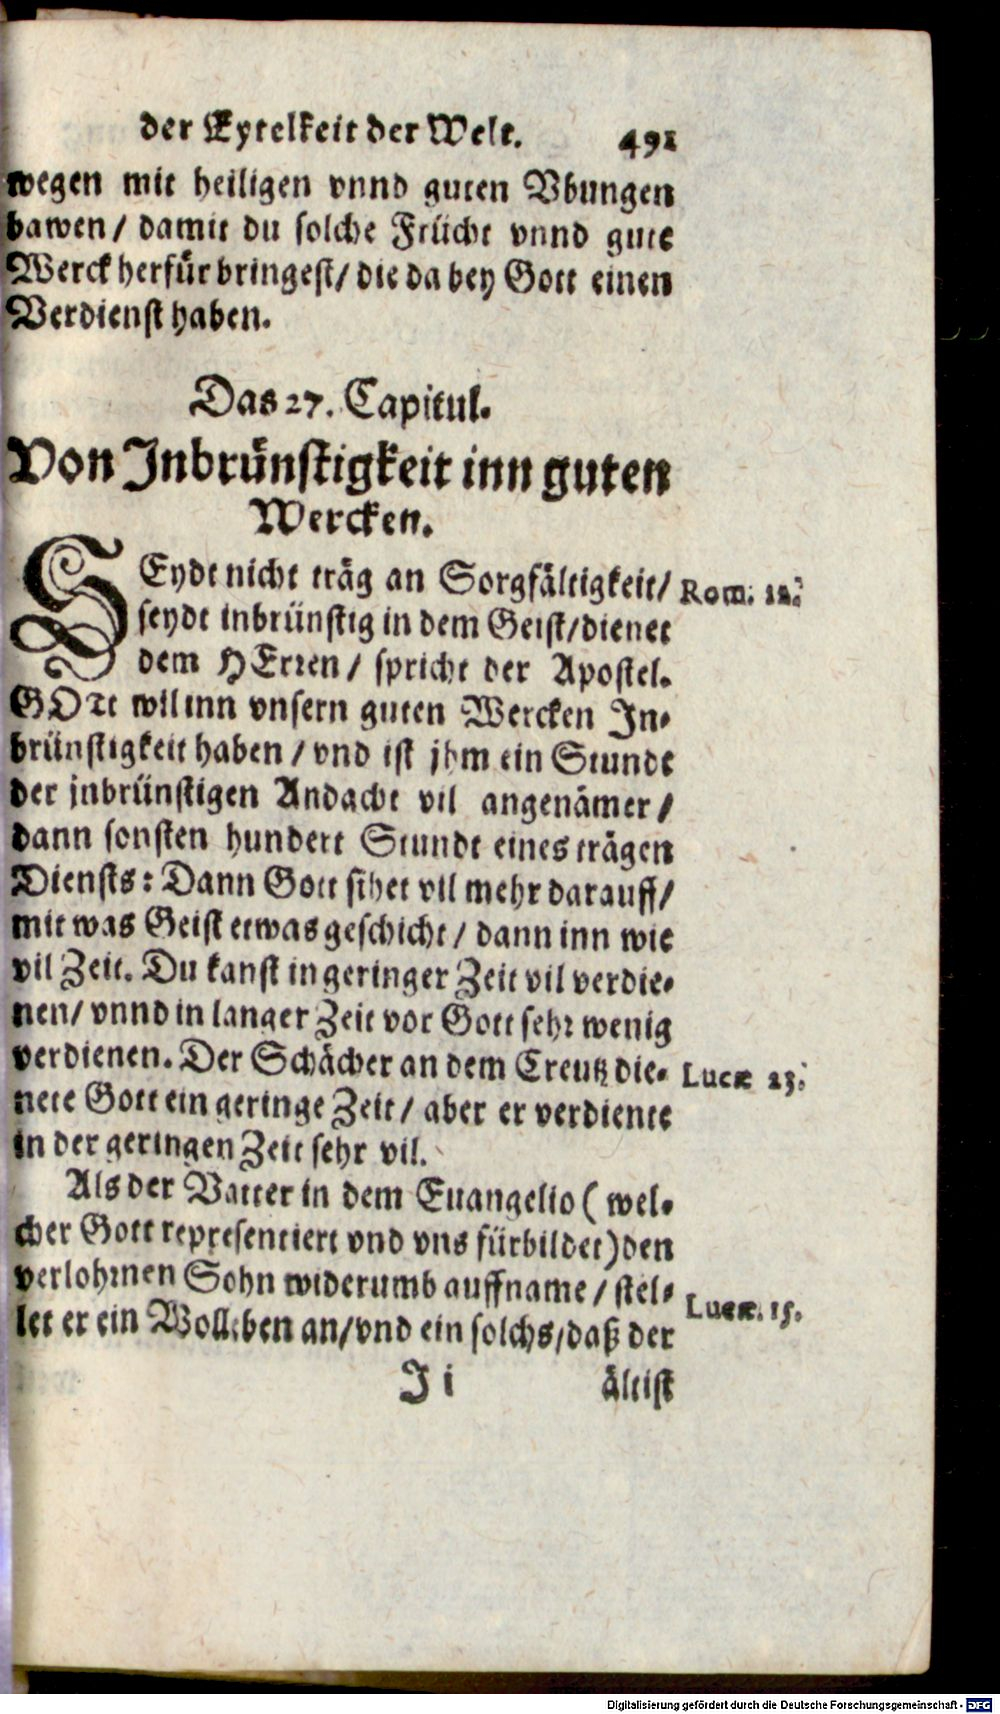 der Eytelkeit der Welt. 491
wegen mit heiligen vnnd guten Vbungen
bawen / damit du solche Frücht vnnd gute
Werck herfür bringest / die da bey Gott einen
Verdienst haben.
Das 27. Capitul.
Von Inbrünstigkeit inn guten
Wercken.
SEydt nicht träg an Sorgfältigkeit / Rom. 12.
seydt inbrünstig in dem Geist / dienet
dem HErren / spricht der Apostel.
GOtt wil inn vnsern guten Wercken In-
brünstigkeit haben / vnd ist jhm ein Stundt
der jnbrünstigen Andacht vil angenämer /
dann sonsten hundert Stundt eines trägen
Diensts: Dann Gott sihet vil mehr darauff /
mit was Geist etwas geschicht / dann inn wie
vil Zeit. Du kanst in geringer Zeit vil verdie-
nen / vnnd in langer Zeit vor Gott sehr wenig
verdienen. Der Schächer an dem Creutz die- Lucæ 23.
nete Gott ein geringe Zeit / aber er verdiente
in der geringen Zeit sehr vil.
Als der Vatter in dem Euangelio ( wel-
cher Gott representiert vnd vns fürbildet) den
verlohrnen Sohn widerumb auffname / stel- Lucæ. 15.
let er ein Wolleben an / vnd ein solchs / daß der
I i ältist
Digitalisierung gefördert durch die Deutsche Forschungsgemeinschaft - DFG